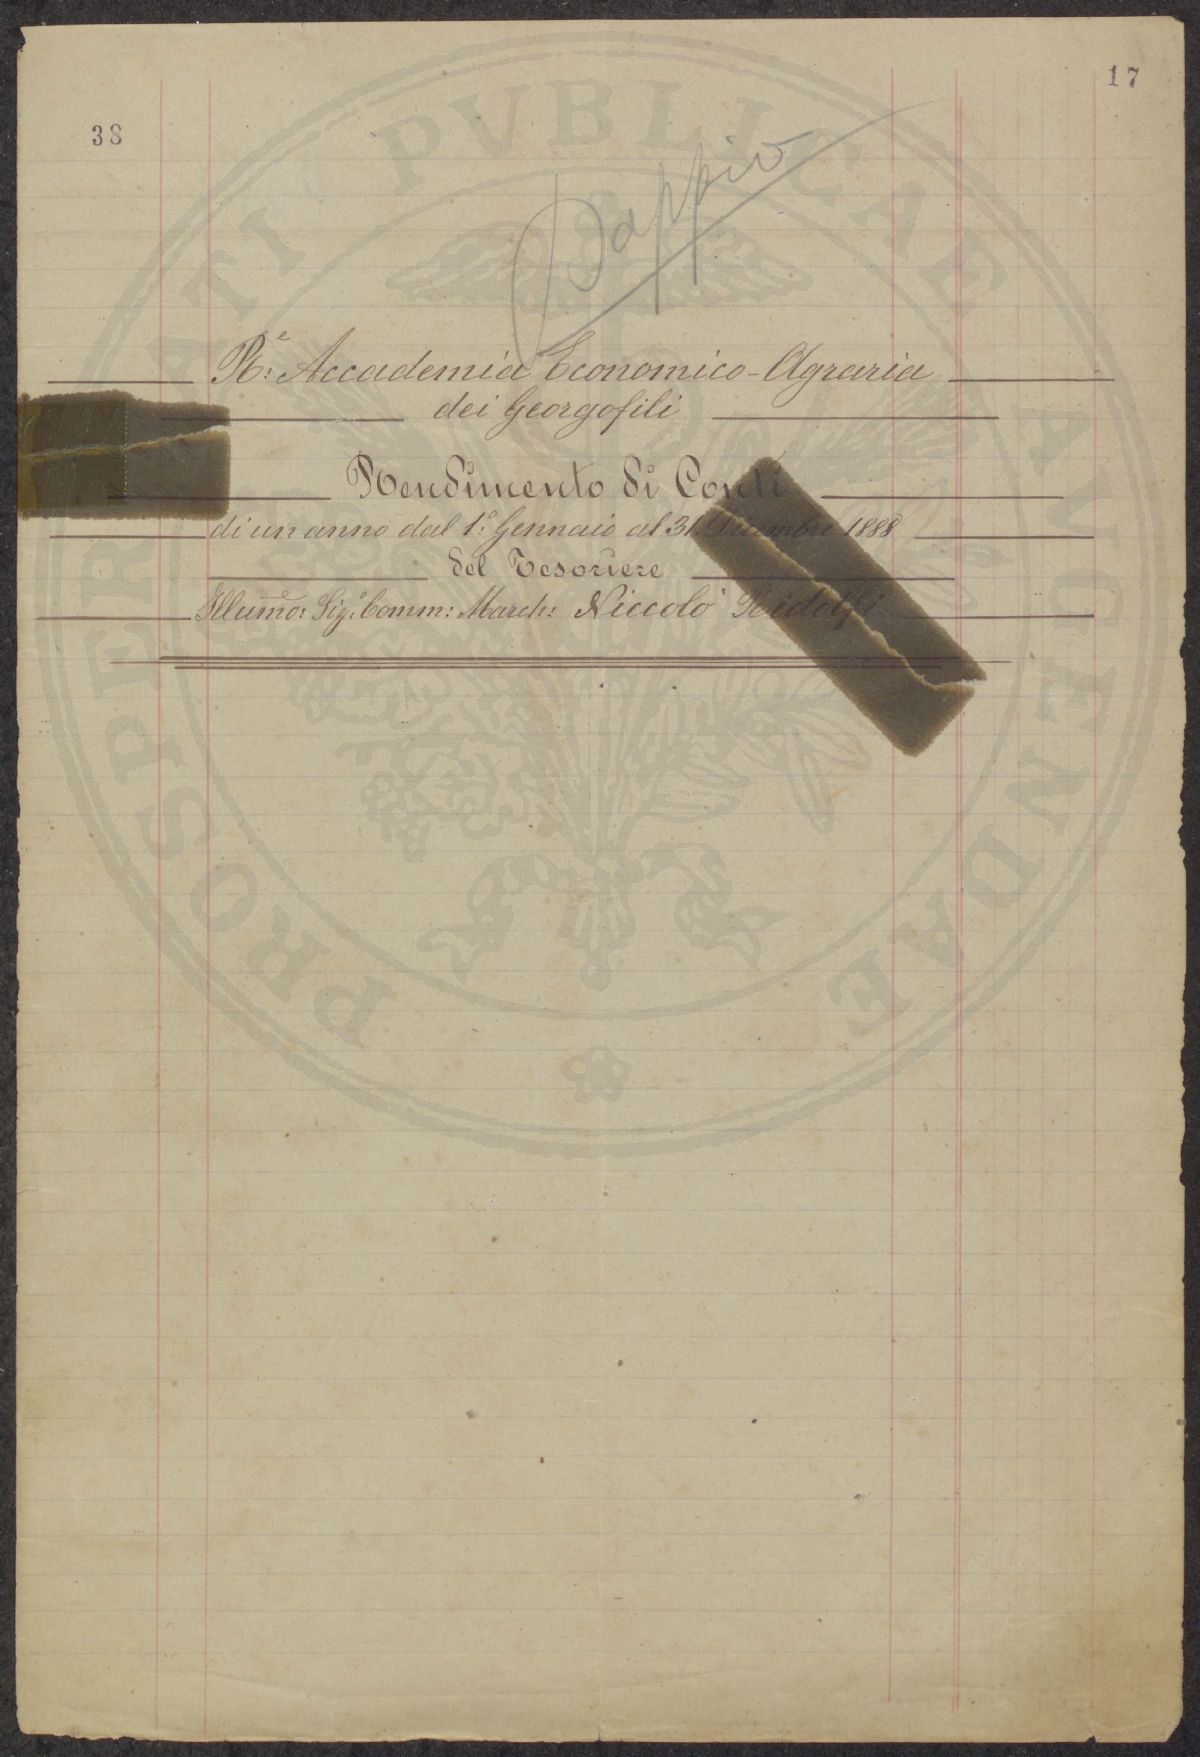 17
38
Doppio
R.e Accademia Economico-Agraria
dei Georgofili
Rendimento di Conti
di un anno dal 1.o Gennaio al 31. Dicembre 1888
del Tesoriere
Illumo: Sig.e Comm: March: Niccolò Ridolfi
PROSPERITATI PVBLICAE AVGENDAE